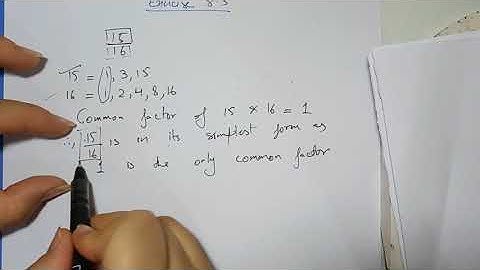 15
16
15 = 1, 3, 15
16 = 1, 2, 4, 8, 16
Common factor of 15 * 16 = 1
∴, 15 is in its simplest form as
16
1 is the only common factor